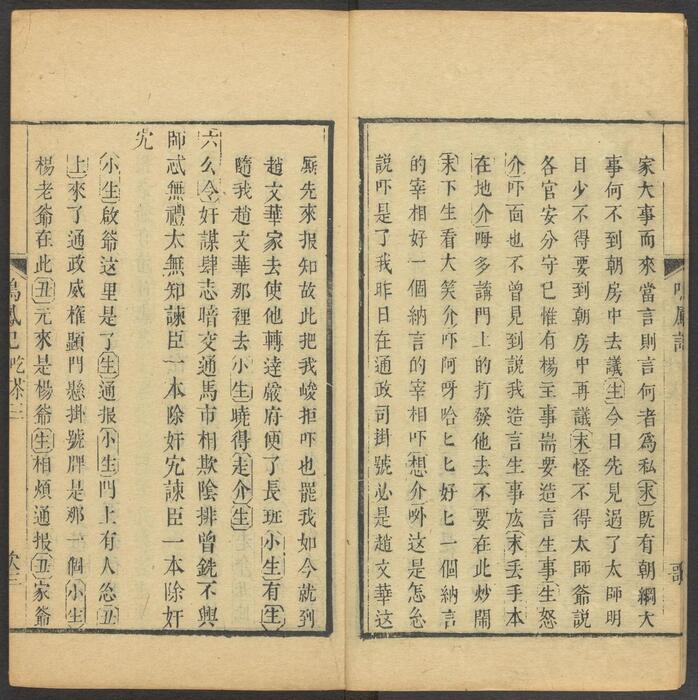 鳴鳳記
歌
家大事而來當言則言何者爲私末旣有朝綱大
事何不到朝房中去議生今日先見過了太師明
日少不得要到朝房中再議末怪不得太師爺說
各官安分守己惟有楊主事耑要造言生事生怒
介吓面也不曾見到說我造言生事庅末丢手本
在地介呣多講門上的打發他去不要在此炒鬧
末下生看大笑介吓阿呀哈匕匕好匕一個納言
的宰相好一個納言的宰相吓想介㖿这是怎么
說吓是了我昨日在通政司掛號必是趙文華这
厮先來报知故此把我峻拒吓也罷我如今就到
趙文華家去使他轉達嚴府便了長班小生有生
隨我趙文華那裡去小生曉得走介生
六么令奸謀肆志暗交通馬市相欺陰排曾銑不興
師忒無禮太無知諫臣一本除奸宄諫臣一本除奸
宄
小生啟爺这里是了生通报小生門上有人么丑
上來了通政威權顯門懸掛號牌是那一個小生
楊老爺在此丑元來是楊爺生相煩通报丑家爺
鳴鳳記 吃茶三